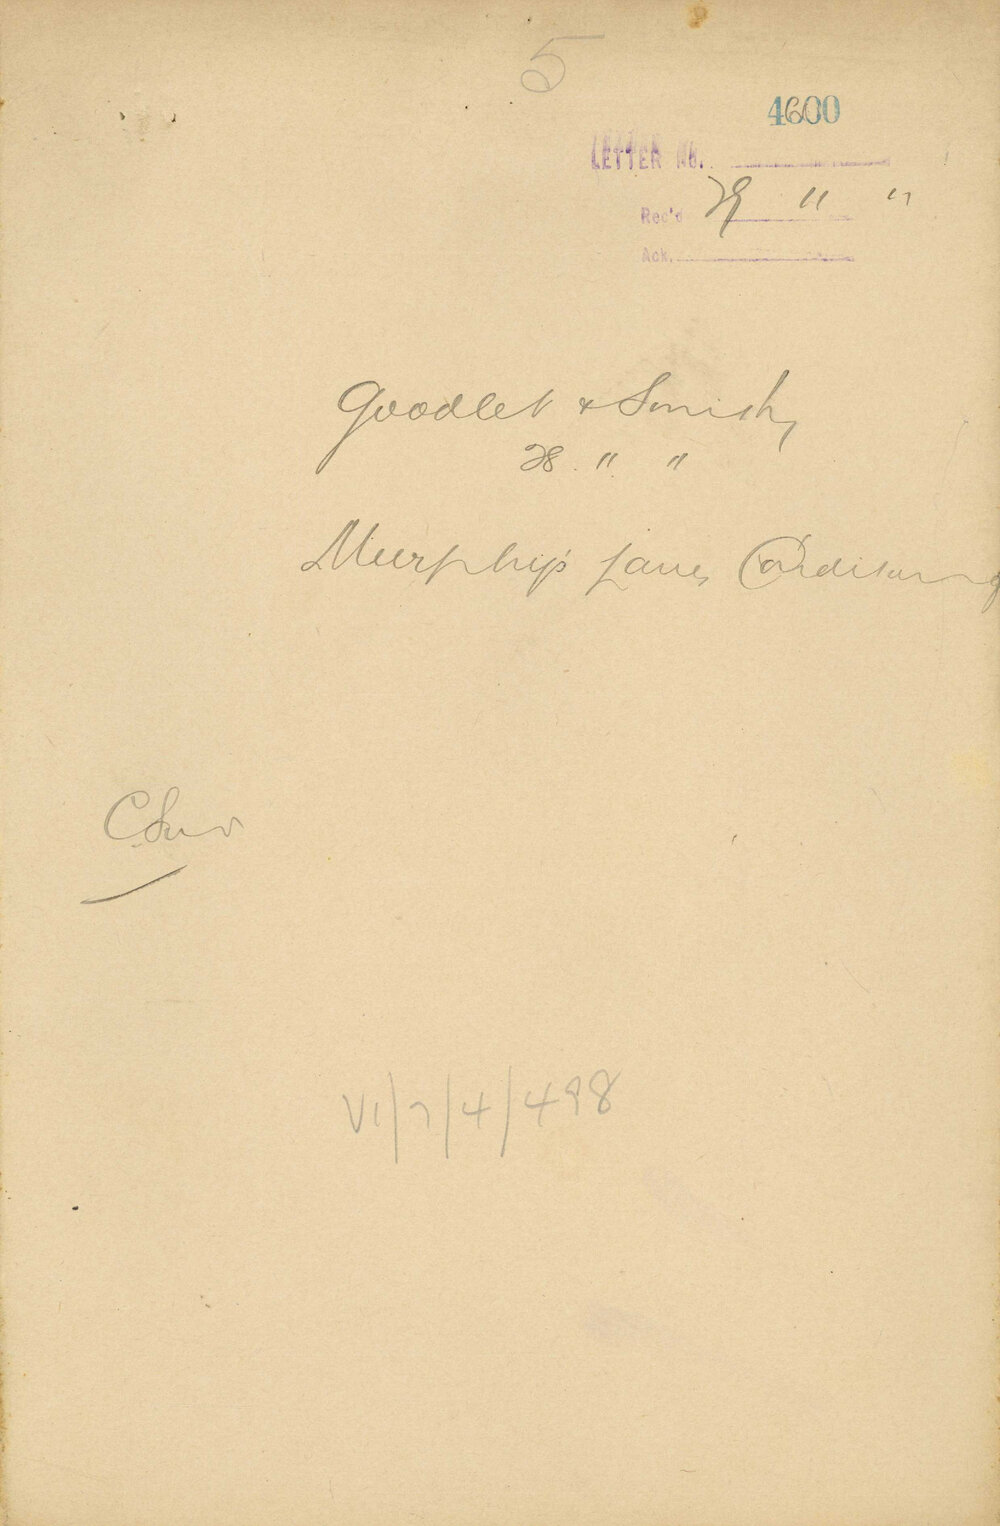 5
4600
LETTER No.
Rec'd 29 " "
Ack.
Goodlet & Smith,
28 " "
Murphy's Lane, Condition of
C Sur
VI/7/4/498